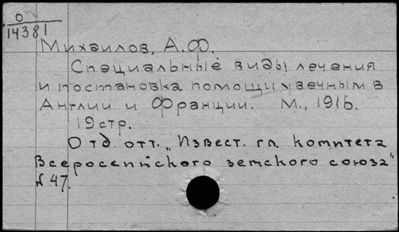 О
14381
Михаилов, А.Ф.
Специальные виды лечения
и постановка помощи увечным в
Англии и Франции. М., 1916.
19стр.
Отд. отт. „Извест. гл. комитета
Всероссийского земского союза"
№ 47.